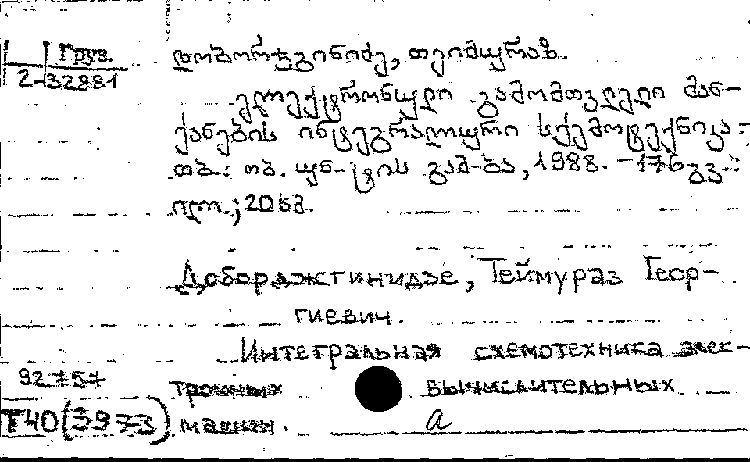 Груз.
2-32881
დობორჯგინიძე, თეიმურაზ.
ელექტრონული გამომთვლელი მან-
ქანების ინტეგრალური სქემოტექნიკა.-
თბ.: თბ. უნ-ტის გამ-ბა, 1988. - 176გვ.:
ილ.; 20სმ.
Доборджгинидзе, Теймураз Геор-
гиевич.
Интегральная схемотехника элек-
92757
тронных вычислительных
Т40(3973) машин. а